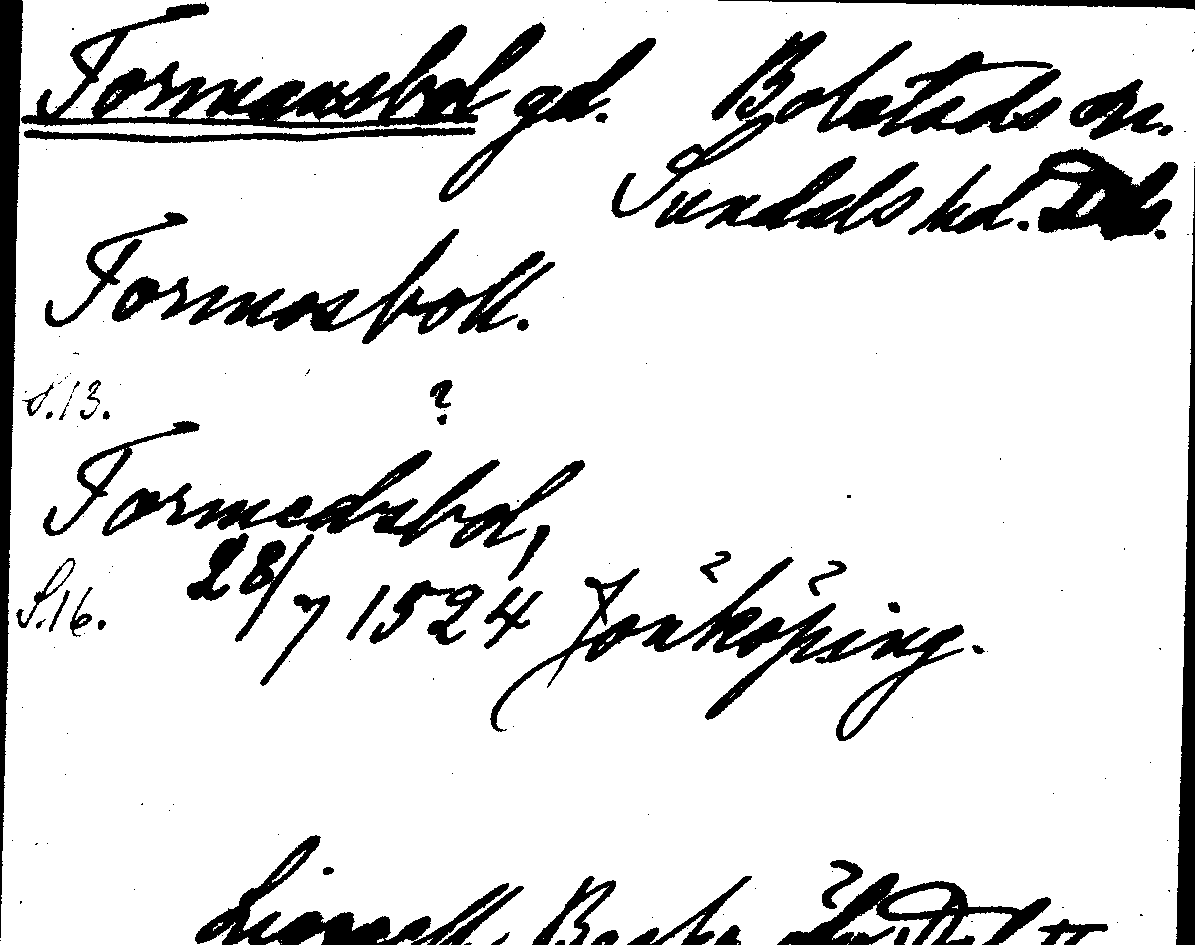 Formansbol gd. Bolstads sn.
Sundals hd. Dls.
Formosboll.
S.13. ?
Formedsbol,
S.16. 28/7 1524 Jönköping.
Lignell, Beskr. öfv. Dal II